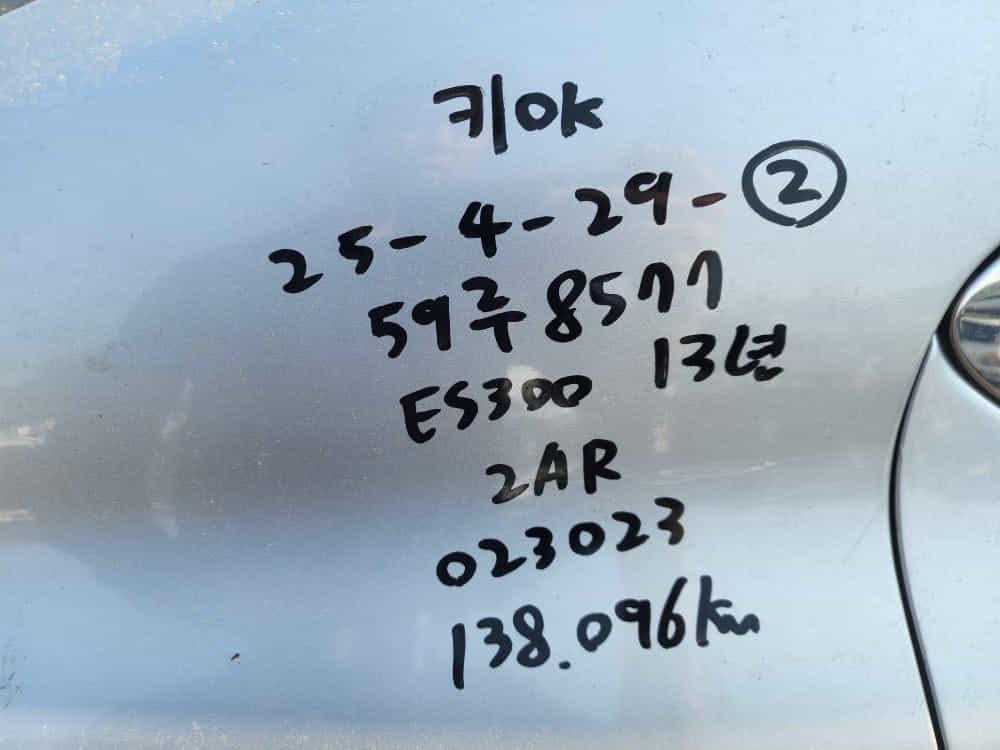 키OK
25-4-29-②
59루8577
ES300 13년
2AR
023023
138.096km